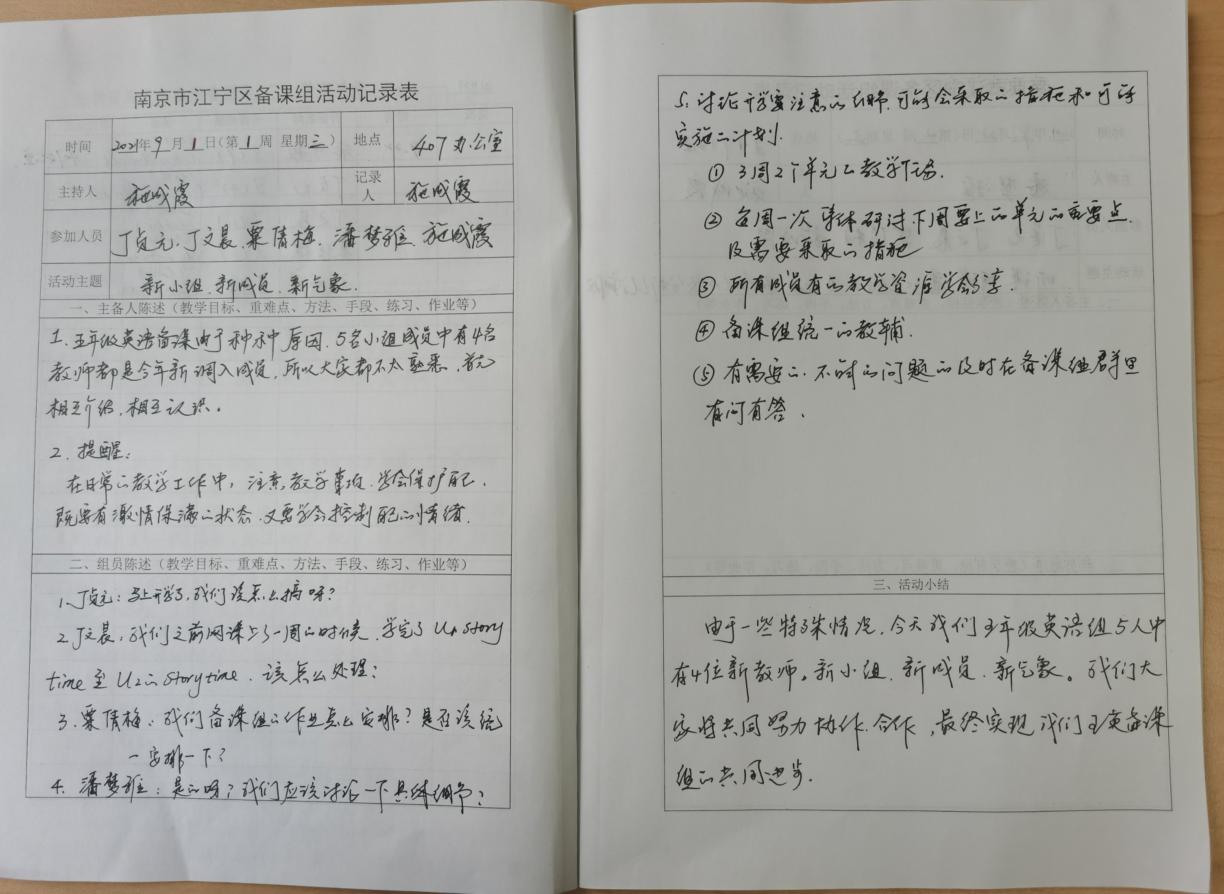 南京市江宁区备课组活动记录表
时间 2021年9月1日(第1周 星期三) 地点 407办公室
主持人 施成霞 记录人 施成霞
参加人员 丁贞元、丁文晨 粟倩梅、潘梦雅 施成霞
活动主题 新小组 新成员 新气象.
一、主备人陈述（教学目标、重难点、方法、手段、练习、作业等）
1. 五年级英语备课由于种种原因, 5名小组成员中有4名
教师都是今年新调入成员, 所以大家都不太熟悉, 首先
相互介绍, 相互认识。
2. 提醒:
在日常的教学工作中, 注意教学事故, 学会保护自己.
既要有激情保满的状态, 又要学会控制自己的情绪.
二、组员陈述（教学目标、重难点、方法、手段、练习、作业等）
1、丁贞元: 马上开学了, 我们该怎么搞呀?
2. 丁文晨: 我们之前网课上了一周的时候, 学完了U1 Story
time 至 U2的 Story time, 该怎么处理?
3. 粟倩梅: 我们备课组的作业怎么安排? 是否该统
一安排一下?
4. 潘梦雅: 是的呀? 我们应该讨论一下具体细节?
5. 讨论开学要注意的细节, 可能会采取的措施和可能
实施的计划.
① 3周2个单元的教学任务.
② 每周一次集体研讨下周要上的单元的重要点
及需要采取的措施
③ 所有成员有的教学资源学会分享.
④ 备课组统一的教辅.
⑤ 有需要的, 不时的问题的及时在备课组群里
有问有答.
三、活动小结
由于一些特殊情况, 今天我们五年级英语组5人中
有4位新教师。新小组, 新成员, 新气象。我们大
家将共同努力协作, 合作, 最终实现我们五英备课
组的共同进步.